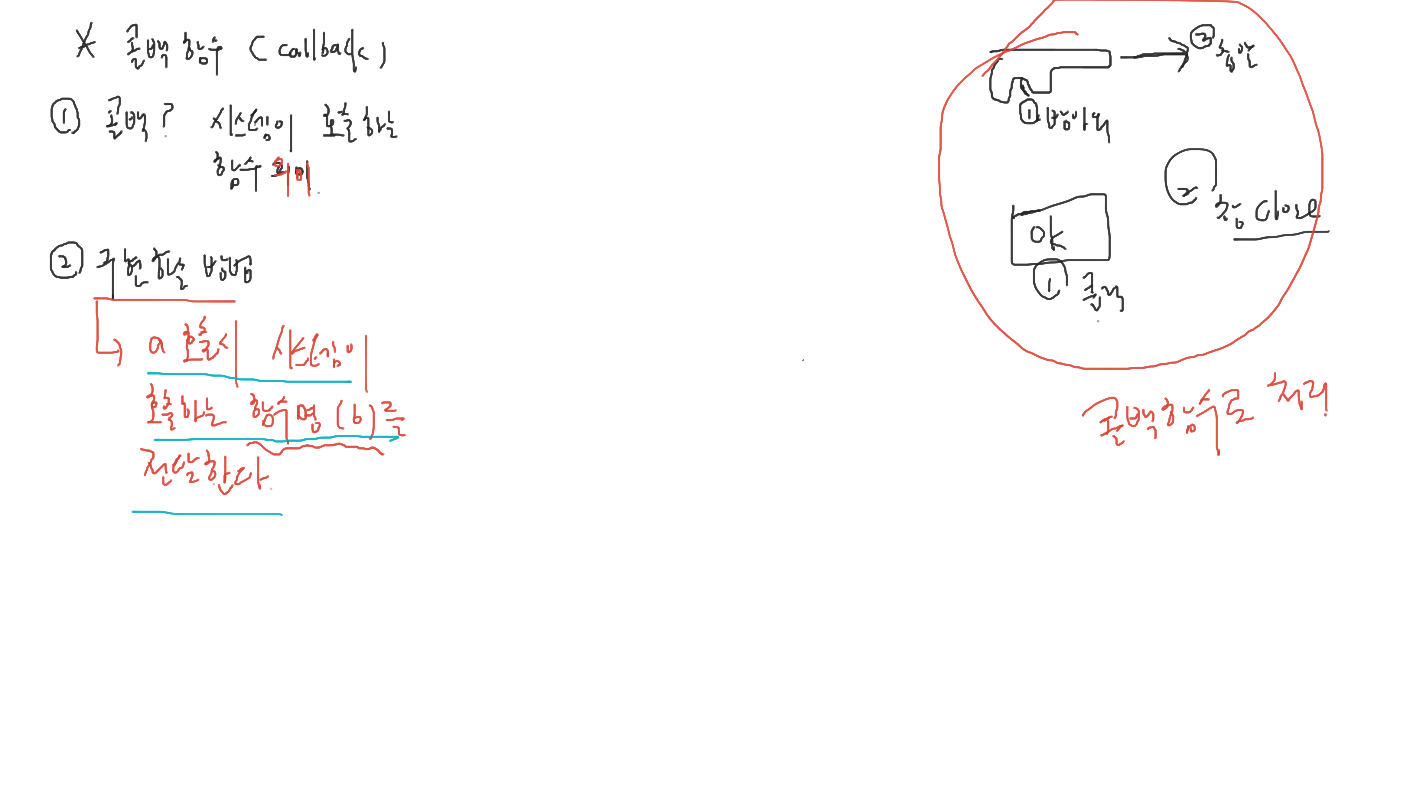 * 콜백 함수 (callback)
① 콜백? 시스템이 호출하는
함수 의미.
② 구현할 방법
a 호출시 시스템이
호출하는 함수명(b)를
전달한다.
② 총알
① 방아쇠
② 창 close
OK
① 클릭
콜백함수로 처리